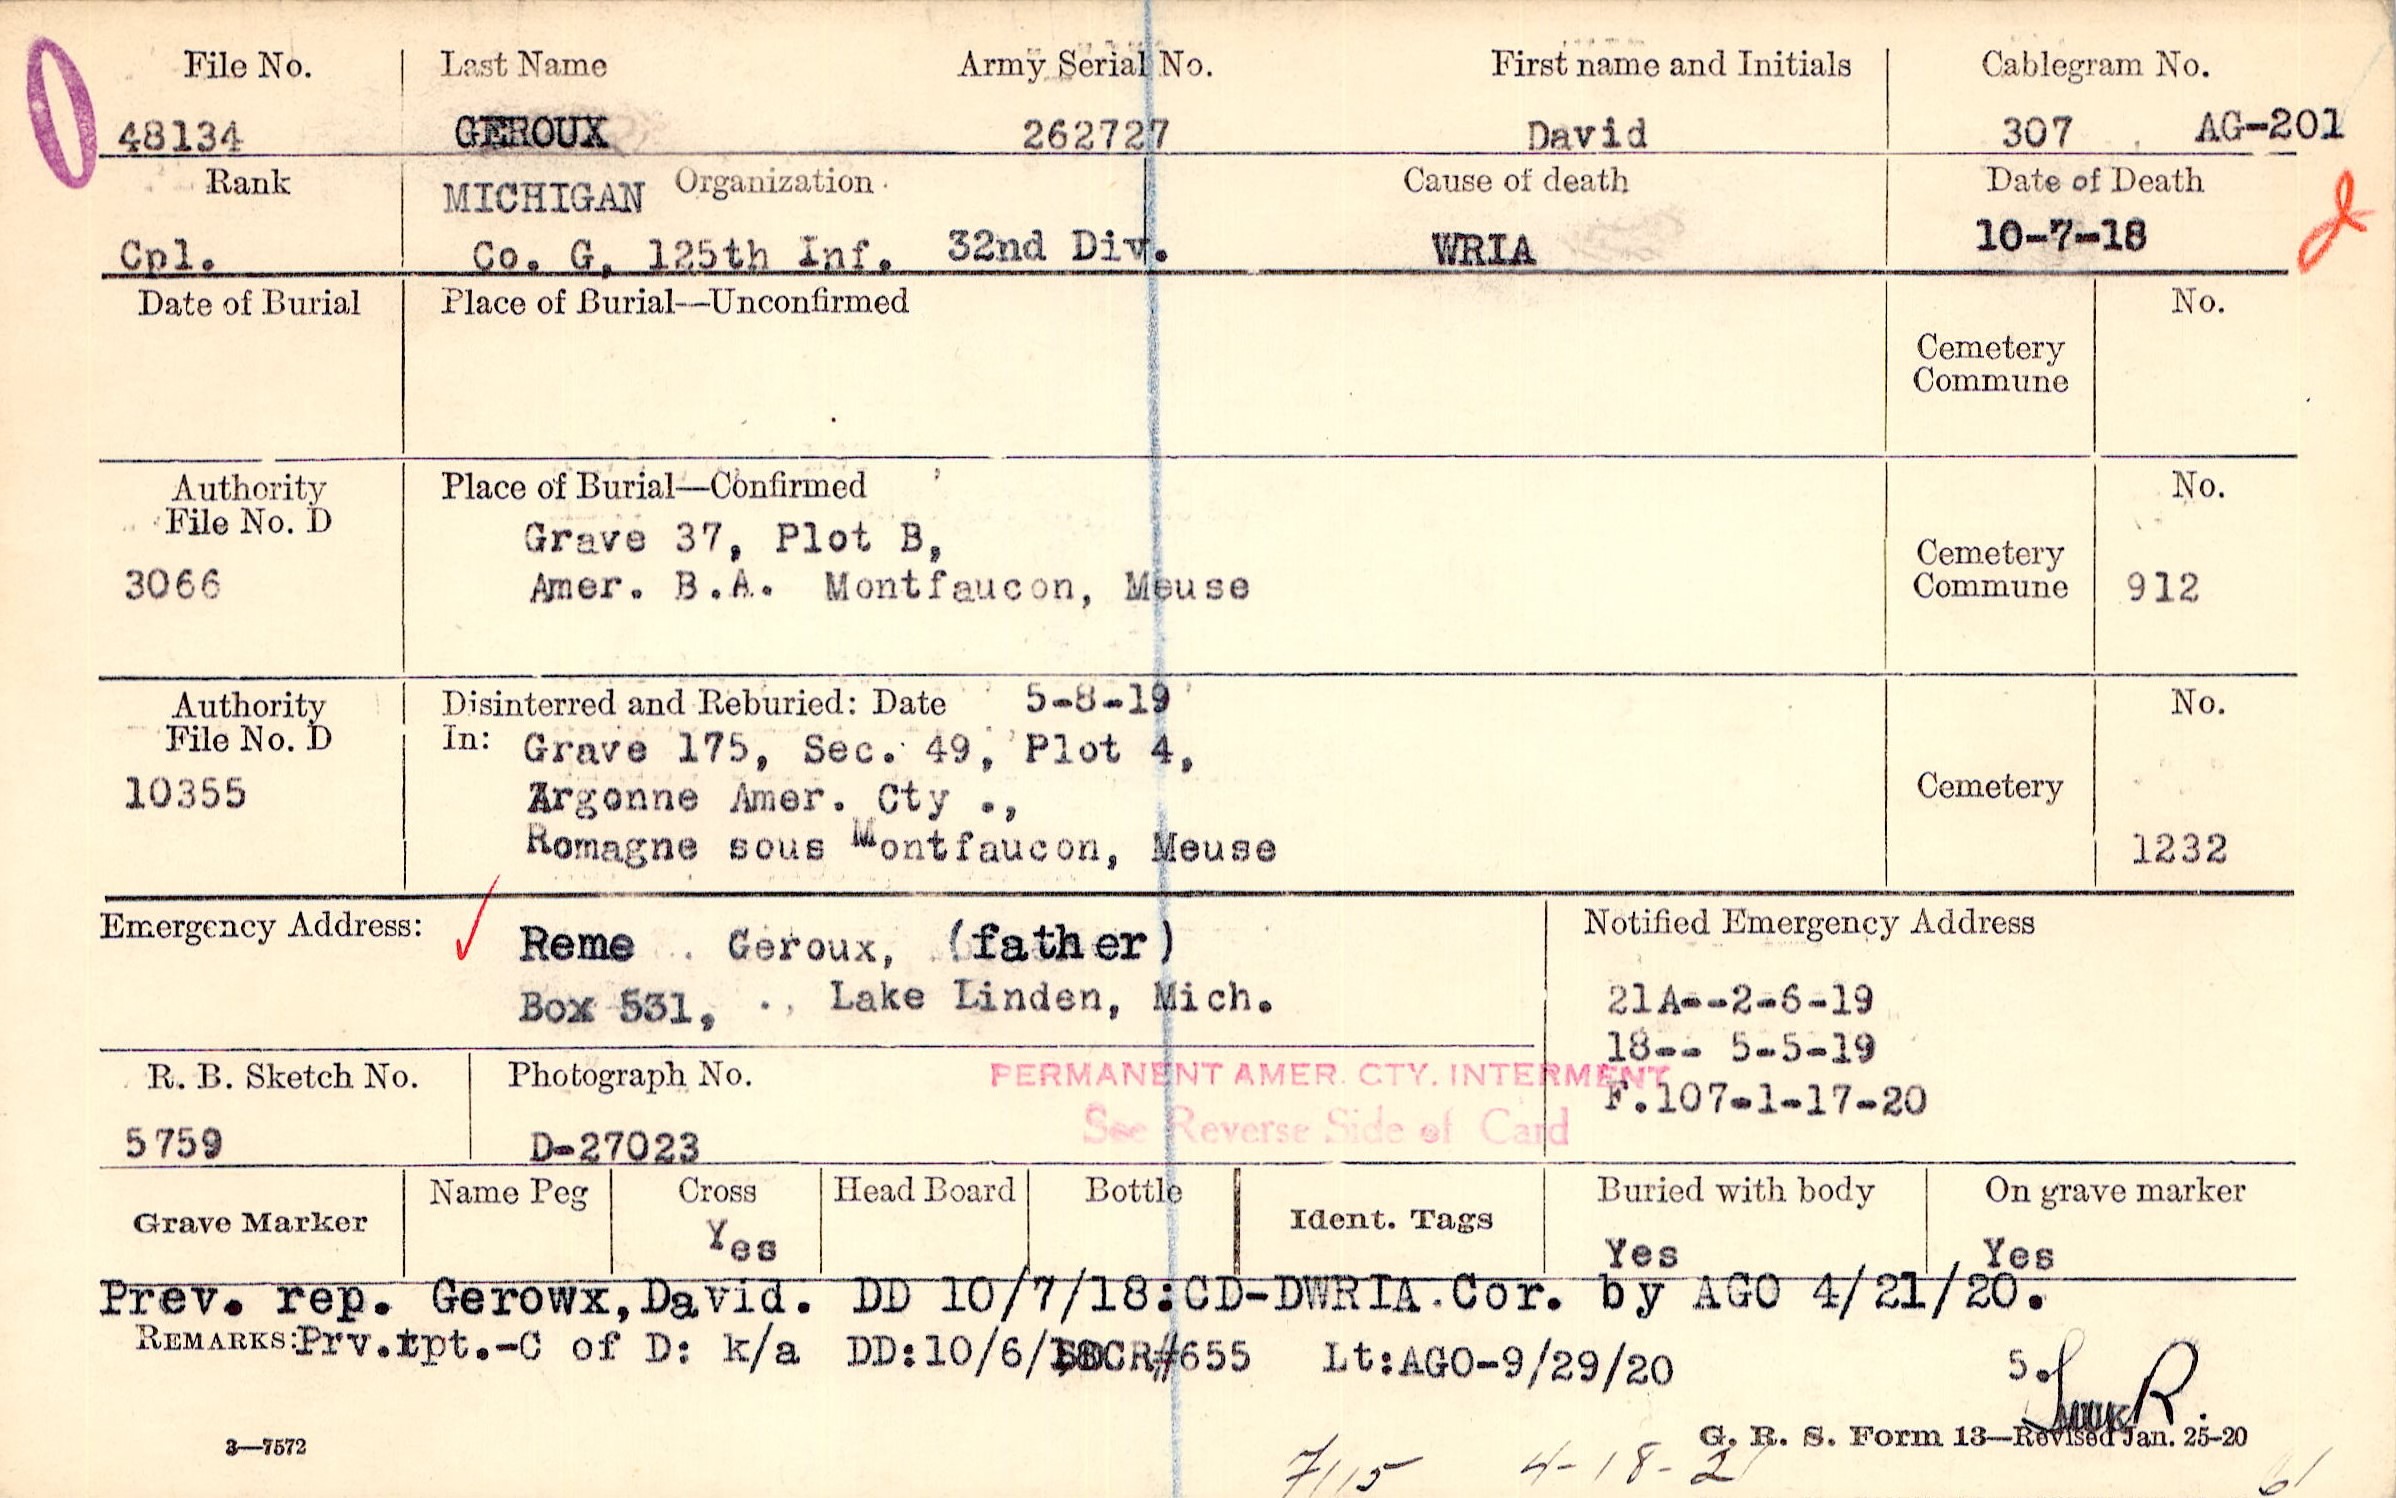 File No. Last Name Army Serial No. First name and Initials Cablegram No.
48134 GEROUX 262727 David 307 AG-201
Rank MICHIGAN Organization Cause of death Date of Death
Cpl. Co. G, 125th Inf. 32nd Div. WRIA 10-7-18
Date of Burial Place of Burial—Unconfirmed No.
Cemetery
Commune
Authority Place of Burial—Confirmed No.
File No. D
Grave 37, Plot B,
Cemetery
3066 Amer. B.A. Montfaucon, Meuse Commune 912
Authority Disinterred and Reburied: Date 5-8-19 No.
File No. D In: Grave 175, Sec. 49, Plot 4,
10355 Argonne Amer. Cty ., Cemetery
Romagne sous Montfaucon, Meuse 1232
Emergency Address: Notified Emergency Address
Reme Geroux, (father)
Box 531, Lake Linden, Mich. 21A--2-6-19
18-- 5-5-19
R. B. Sketch No. Photograph No. PERMANENT AMER. CTY. INTERMENT
F.107-1-17-20
See Reverse Side of Card
5759 D-27023
Name Peg Cross Head Board Bottle Buried with body On grave marker
Grave Marker Ident. Tags
Yes Yes Yes
Prev. rep. Gerowx,David. DD 10/7/18:CD-DWRIA.Cor. by AGO 4/21/20.
REMARKS:Prv.rpt.-C of D: k/a DD:10/6/18 CR#655 Lt:AGO-9/29/20 5.
R.
3—7572 G. R. S. Form 13—Revised Jan. 25-20
7115 4-18-2 61